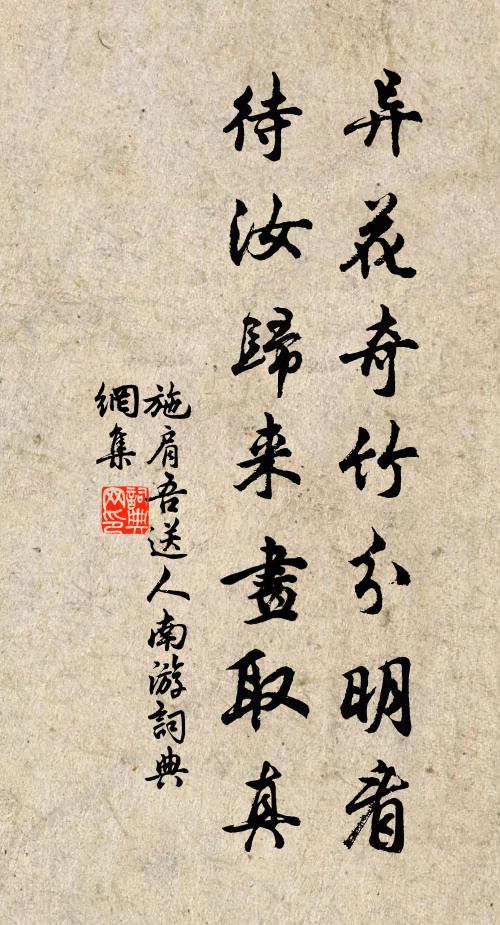 异花奇竹分明看
待汝歸来畫取真
施肩吾送人南游詞典
網集
詞典
网印